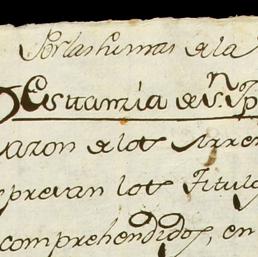 Por las sumas de la
Estancia de Sn. Yp
azon de los Arre
eprevan los Titulo
comprehendidos, en